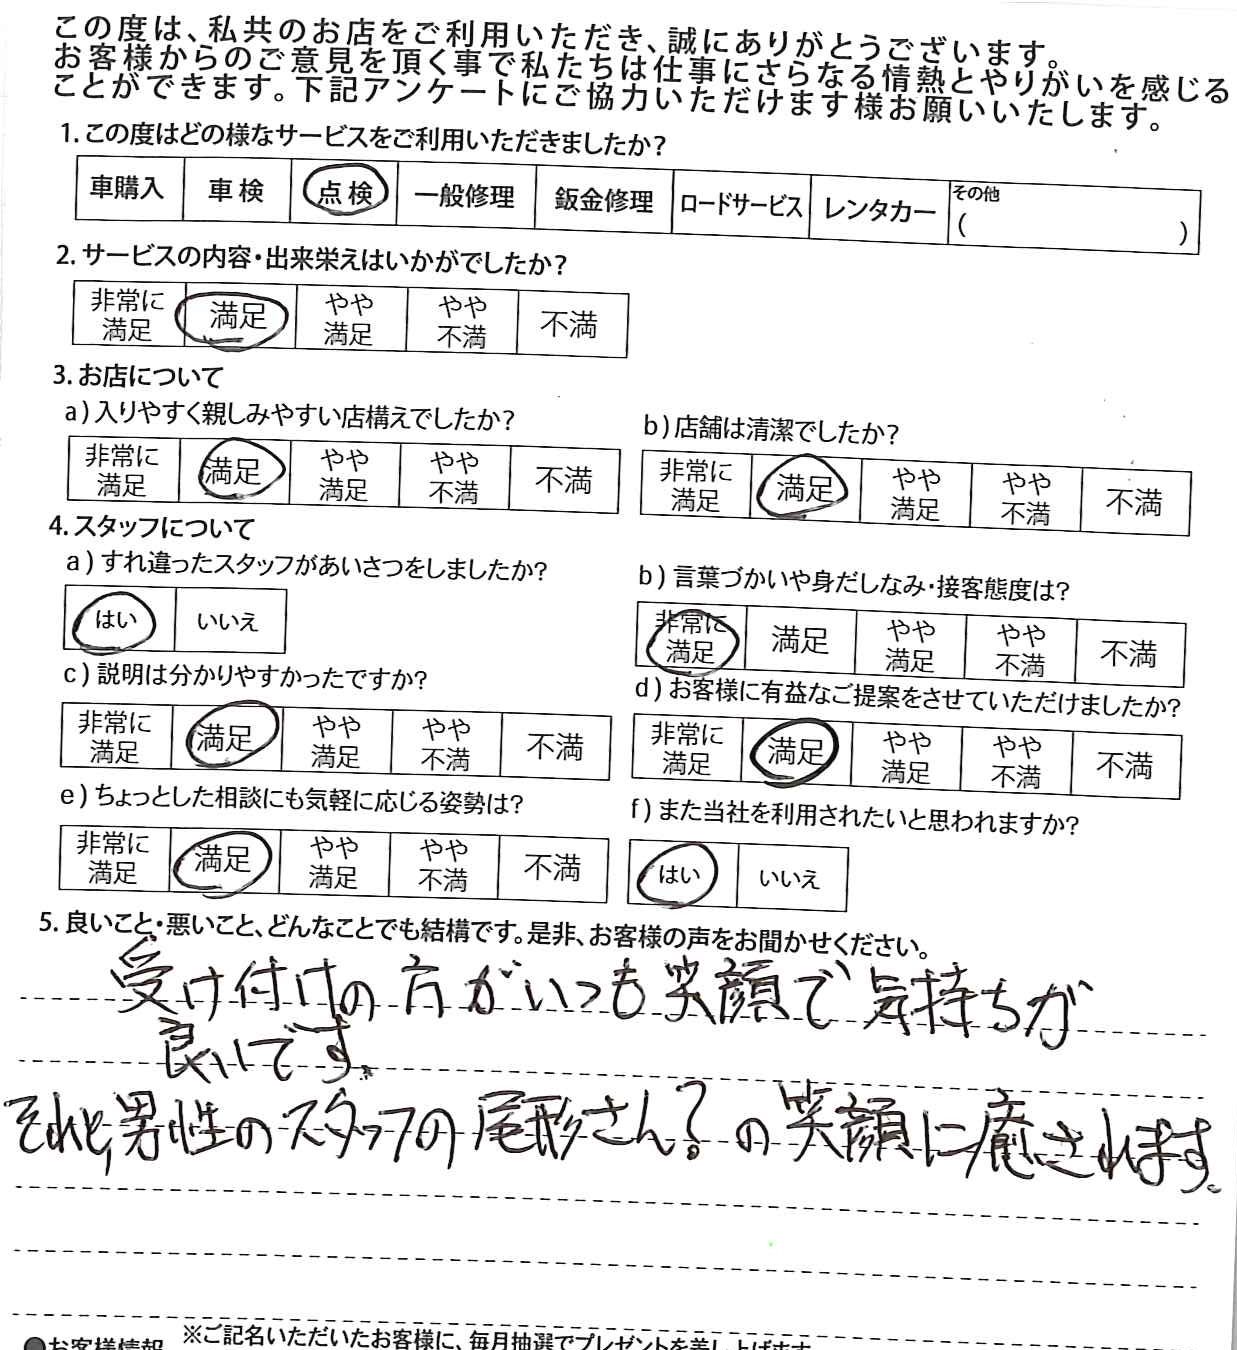 この度は、私共のお店をご利用いただき、誠にありがとうございます。
お客様からのご意見を頂く事で私たちは仕事にさらなる情熱とやりがいを感じる
ことができます。下記アンケートにご協力いただけます様お願いいたします。
1. この度はどの様なサービスをご利用いただきましたか?
車購入 車検 点検 一般修理 鈑金修理 ロードサービス レンタカー その他
( )
2. サービスの内容・出来栄えはいかがでしたか?
非常に満足 満足 やや満足 やや不満 不満
3. お店について
a) 入りやすく親しみやすい店構えでしたか?
非常に満足 満足 やや満足 やや不満 不満
b) 店舗は清潔でしたか?
非常に満足 満足 やや満足 やや不満 不満
4. スタッフについて
a) すれ違ったスタッフがあいさつをしましたか?
はい いいえ
b) 言葉づかいや身だしなみ・接客態度は?
非常に満足 満足 やや満足 やや不満 不満
c) 説明は分かりやすかったですか?
非常に満足 満足 やや満足 やや不満 不満
d) お客様に有益なご提案をさせていただけましたか?
非常に満足 満足 やや満足 やや不満 不満
e) ちょっとした相談にも気軽に応じる姿勢は?
非常に満足 満足 やや満足 やや不満 不満
f) また当社を利用されたいと思われますか?
はい いいえ
5. 良いこと・悪いこと、どんなことでも結構です。是非、お客様の声をお聞かせください。
受け付けの方がいつも笑顔で気持ちが
良いです。
それと、男性のスタッフの尾形さん?の笑顔に癒されます。
●お客様情報 ※ご記名いただいたお客様に、毎月抽選でプレゼントを差し上げます